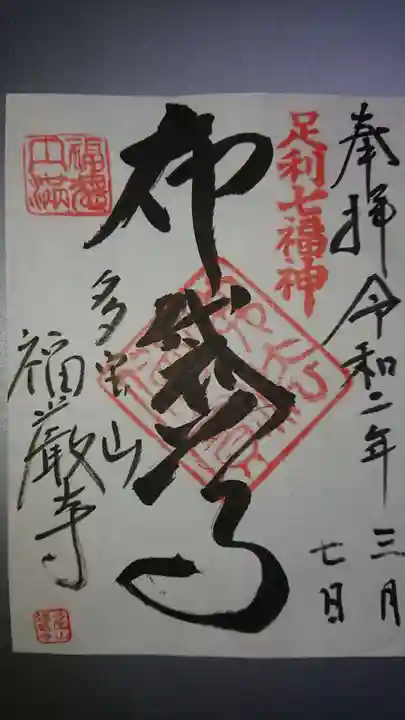 奉拝 令和二年三月
七日
足利七福神
布袋尊
多宝山
福厳寺
福徳
円満